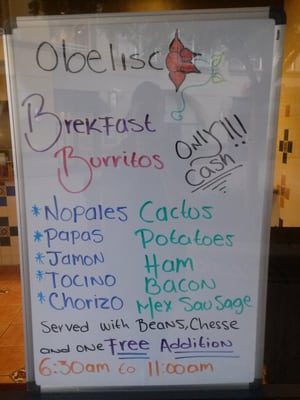 Obelisco
BrekFast
Burritos
ONLY!!!
Cash
*Nopales Cactos
*Papas Potatoes
*Jamon Ham
*Tocino Bacon
*Chorizo Mex Sausage
Served with Beans, Chesse
and one Free Addition
6:30am to 11:00am